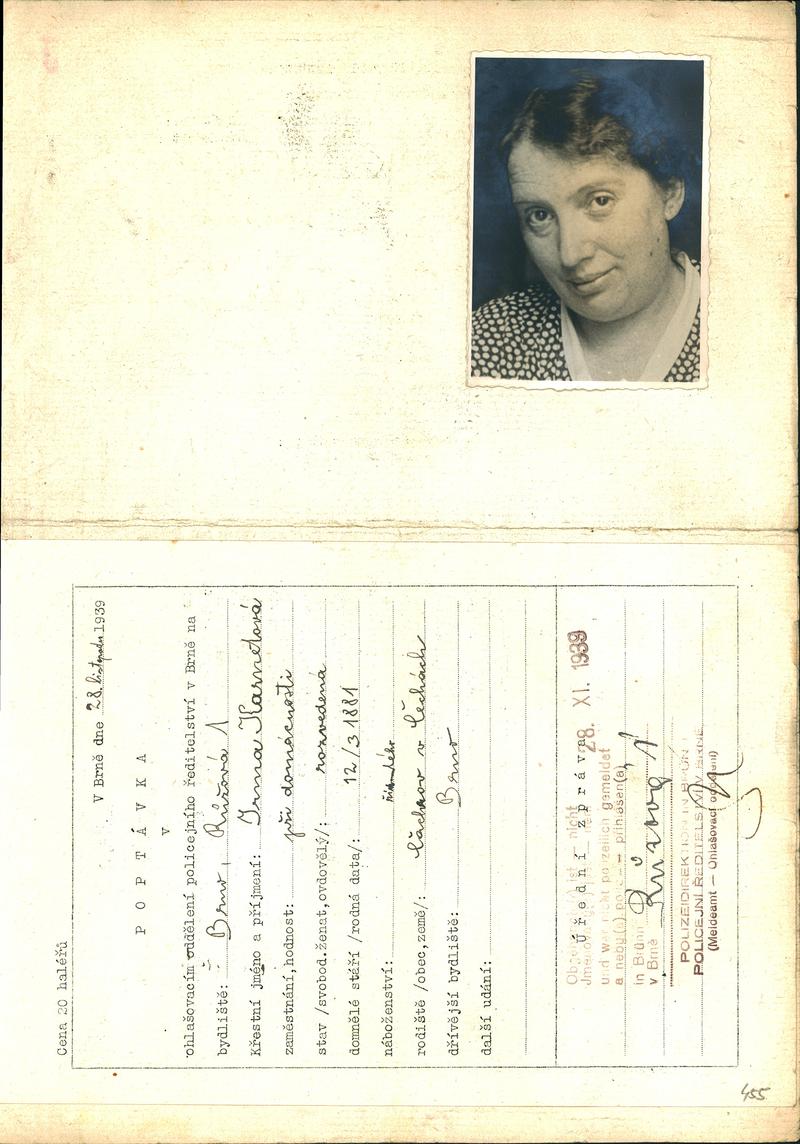 Cena 20 haléřů
V Brně dne 28. listopadu 1939
POPTÁVKA
v
ohlašovacím oddělení policejního ředitelství v Brně na
bydliště: Brno, Růžová 1
Křestní jméno a příjmení: Irma Karnetová
zaměstnání,hodnost: při domácnosti
stav /svobod.ženat,ovdovělý/: rozvedená
domnělé stáří /rodná data/: 12/3 1881
náboženství:
rodiště /obec,země/: v Čechách
dřívější bydliště: Brno
další udání:
Úřední zpráva
28. XI. 1939
nicht
und war nicht polizeilich gemeldet
a nebyl(a) přihlášen(a)
in Brünn
v Brně
Růžová 1
POLIZEIDIREKTION IN BRÜNN
POLICEJNÍ ŘEDITELSTVÍ V BRNĚ
(Meldeamt — Ohlašovací oddělení)
455